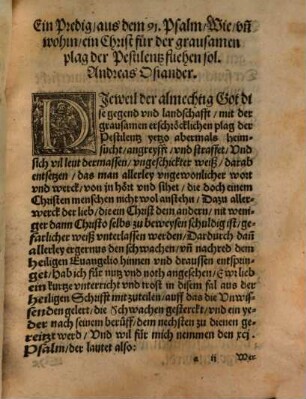 Ein Predig/aus dem 91. Psalm/Wie/vn̄
wohin/ein Christ für der grausamen
plag der Pestilentz fliehen sol.
Andreas Osiander.
DIeweil der almechtig Got di
se gegend vnd landschafft / mit der
grausamen erschröcklichen plag der
Pestilentz yetzo abermals heim-
sucht/angreyfft/vnd straffet. Vnd
sich vil leut dermassen/ vngeschickter weiß/ darab
entsetzen / das man allerley vngewonlicher wort
vnd werck/ von jn hört vnd sihet/ die doch einem
Christen menschen nicht wol anstehn / Dazu aller-
werck der lieb/die ein Christ dem andern/ mit weni-
ger dann Christo selbs zu beweysen schuldig ist/ge-
färlicher weiß vnterlassen werden/ Dardurch dan̄
allerley ergernus den schwachen/ vn̄ nachred dem
heiligen Euangelio hinnen vnd draussen entsprin-
get/Hab ich für nutz vnd noth angesehen/ Ewr lieb
ein kurtze vnterricht vnd trost in disem fal aus der
heiligen Schrifft mitzuteilen/ auff das die Vnwis-
senden gelert/die schwachen gesterckt/vnd ein ye-
der nach seinem berüff/dem nechsten zu dienen ge-
reitzt werd / Vnd wil für mich nemmen den xcj.
Psalm/der lautet also:
a ij Wer